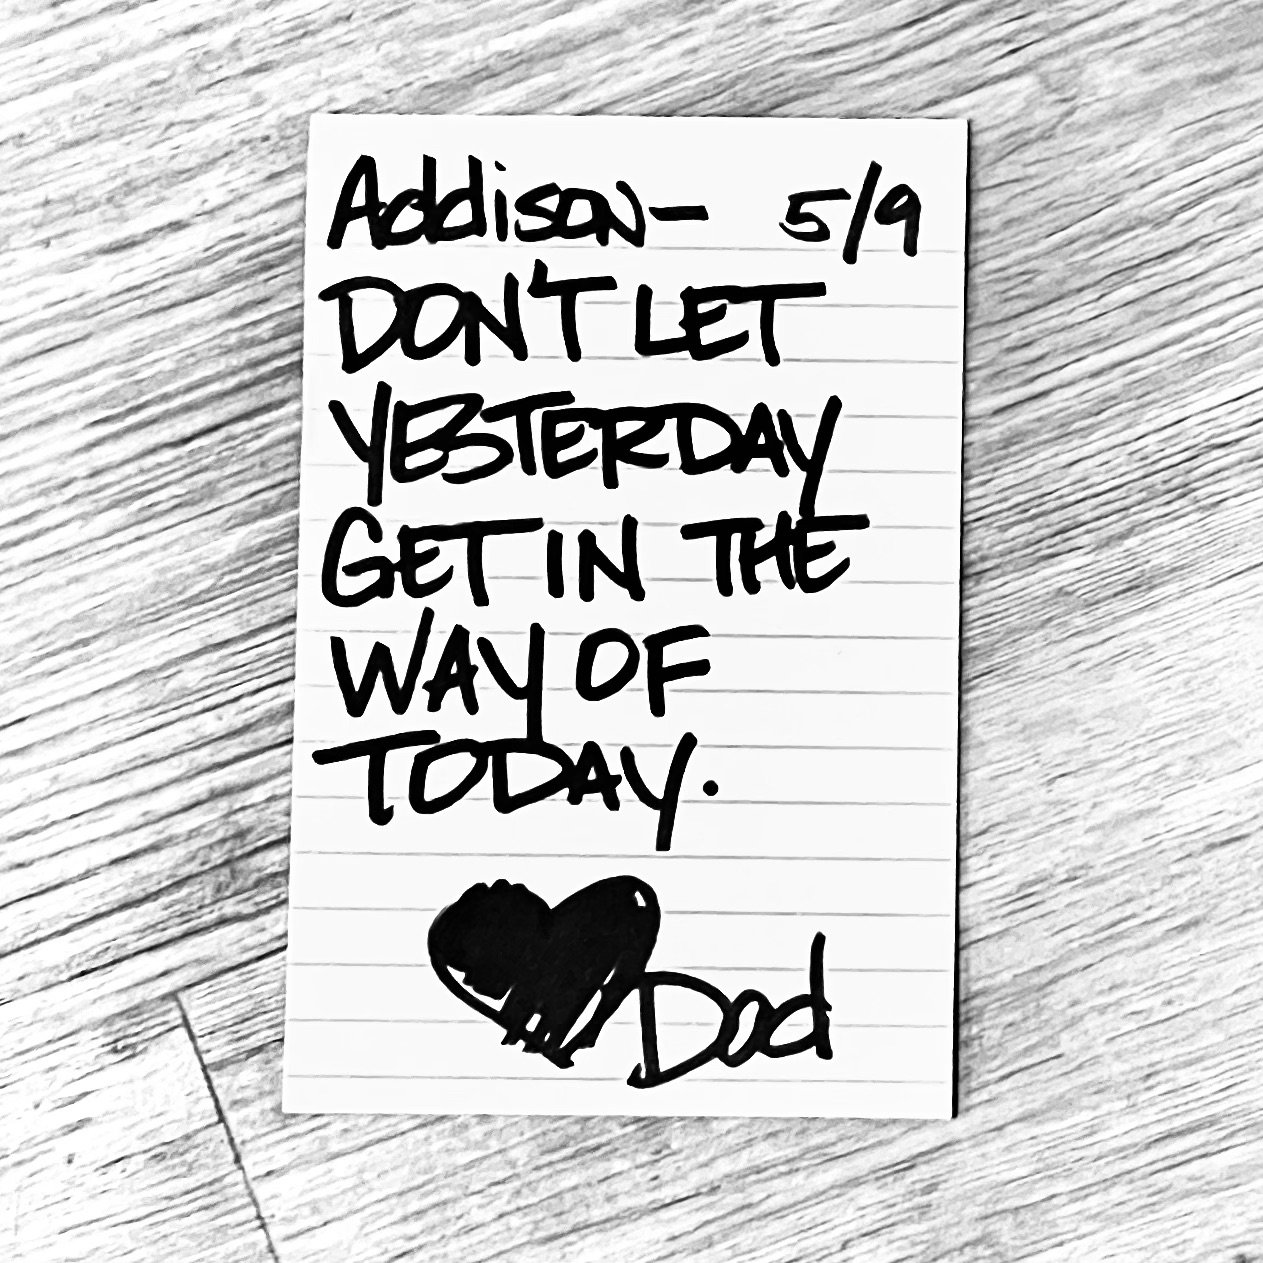 Addison— 5/9
DON'T LET
YESTERDAY
GET IN THE
WAY OF
TODAY.
Dad